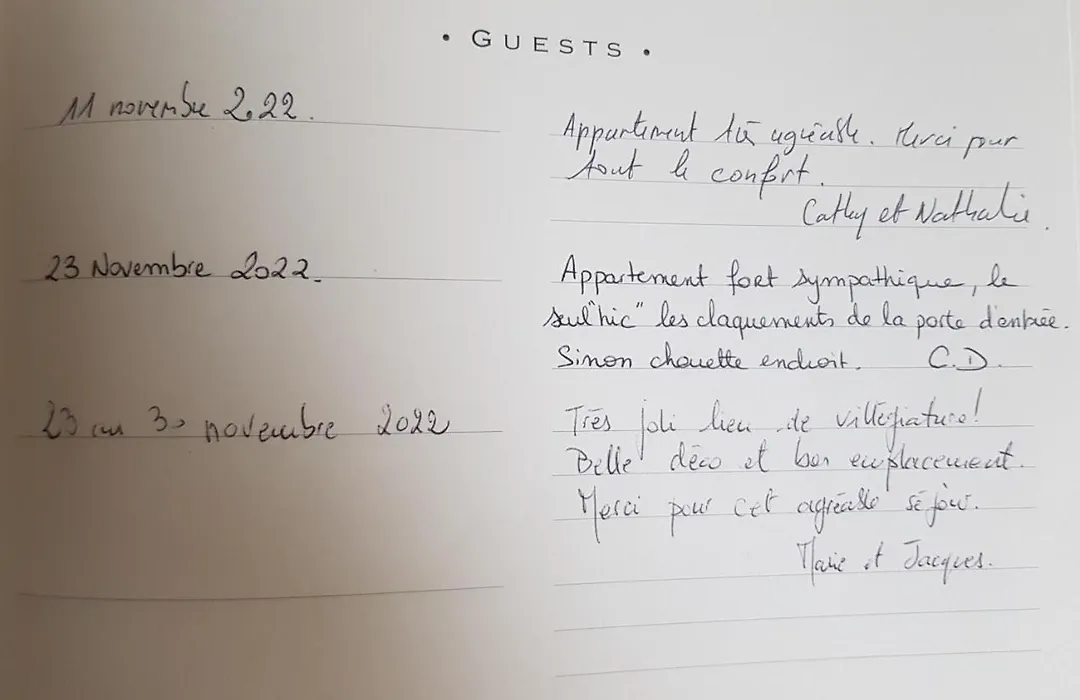 • GUESTS •
11 novembre 2022.
Appartement très agréable. Merci pour
tout le confort.
Cathy et Nathalie.
23 Novembre 2022_
Appartement fort sympathique, le
seul "hic" les claquements de la porte d'entrée.
Sinon chouette endroit. C.D.
23 au 30 novembre 2022
Très joli lieu de villégiature!
Belle déco et bon emplacement.
Merci pour cet agréable séjour.
Marie et Jacques.